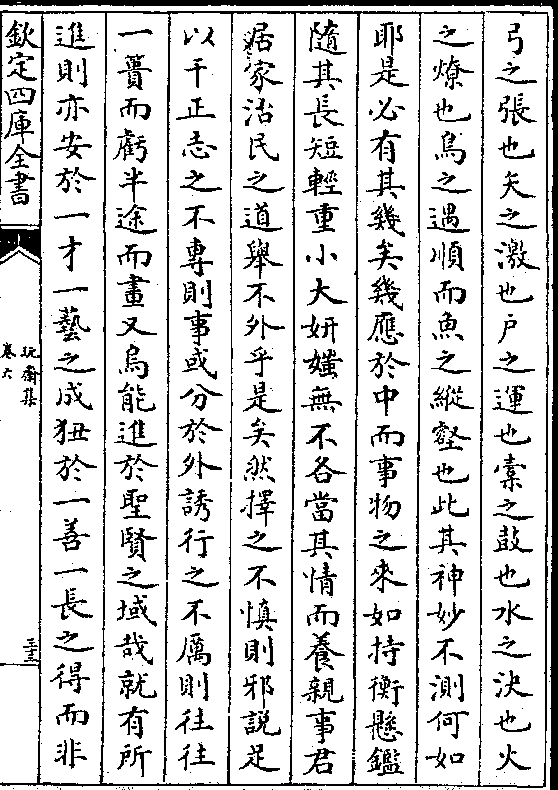 弓之張也矢之激也户之運也橐之鼓也水之決也火
之燎也鳥之遇順而魚之縱壑也此其神妙不測何如
耶是必有其幾矣幾應於中而事物之來如持衡懸鑑
隨其長短輕重小大妍媸無不各當其情而養親事君
居家治民之道舉不外乎是矣然擇之不慎則邪説足
以干正志之不專則事或分於外誘行之不厲則往往
一蕢而虧半途而畫又烏能進於聖賢之域哉就有所
進則亦安於一才一藝之成狃於一善一長之得而非
欽定四庫全書
玩齋集
卷六
三十三